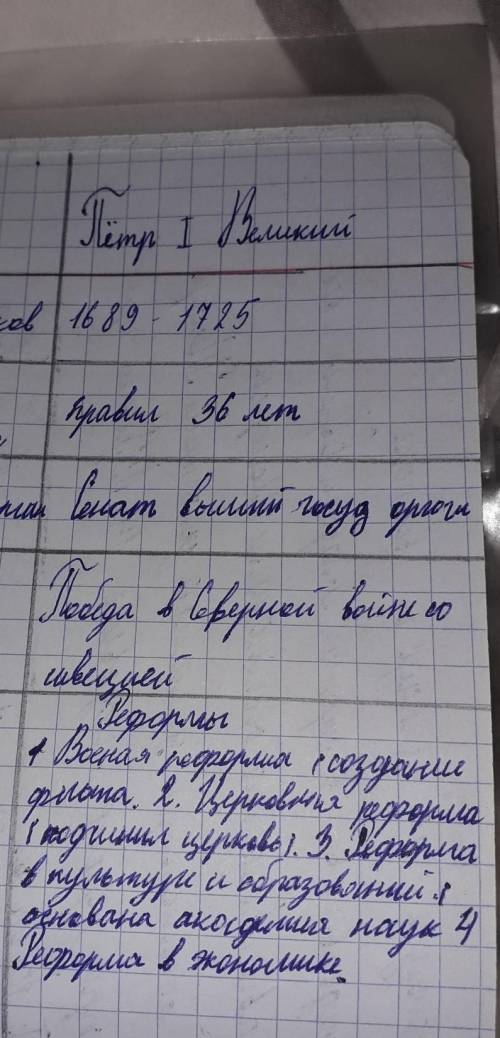 Пётр I Великий
ков 1689 - 1725
правил 36 лет
Сенат высший госуд орган
Победа в Северной войне со
швецией
Реформы
1 Военая реформа (создание
флота. 2. Церковная реформа
(подчинил церковь). 3. Реформа
в культуре и образований (
основана академия наук 4)
Реформа в экономике.